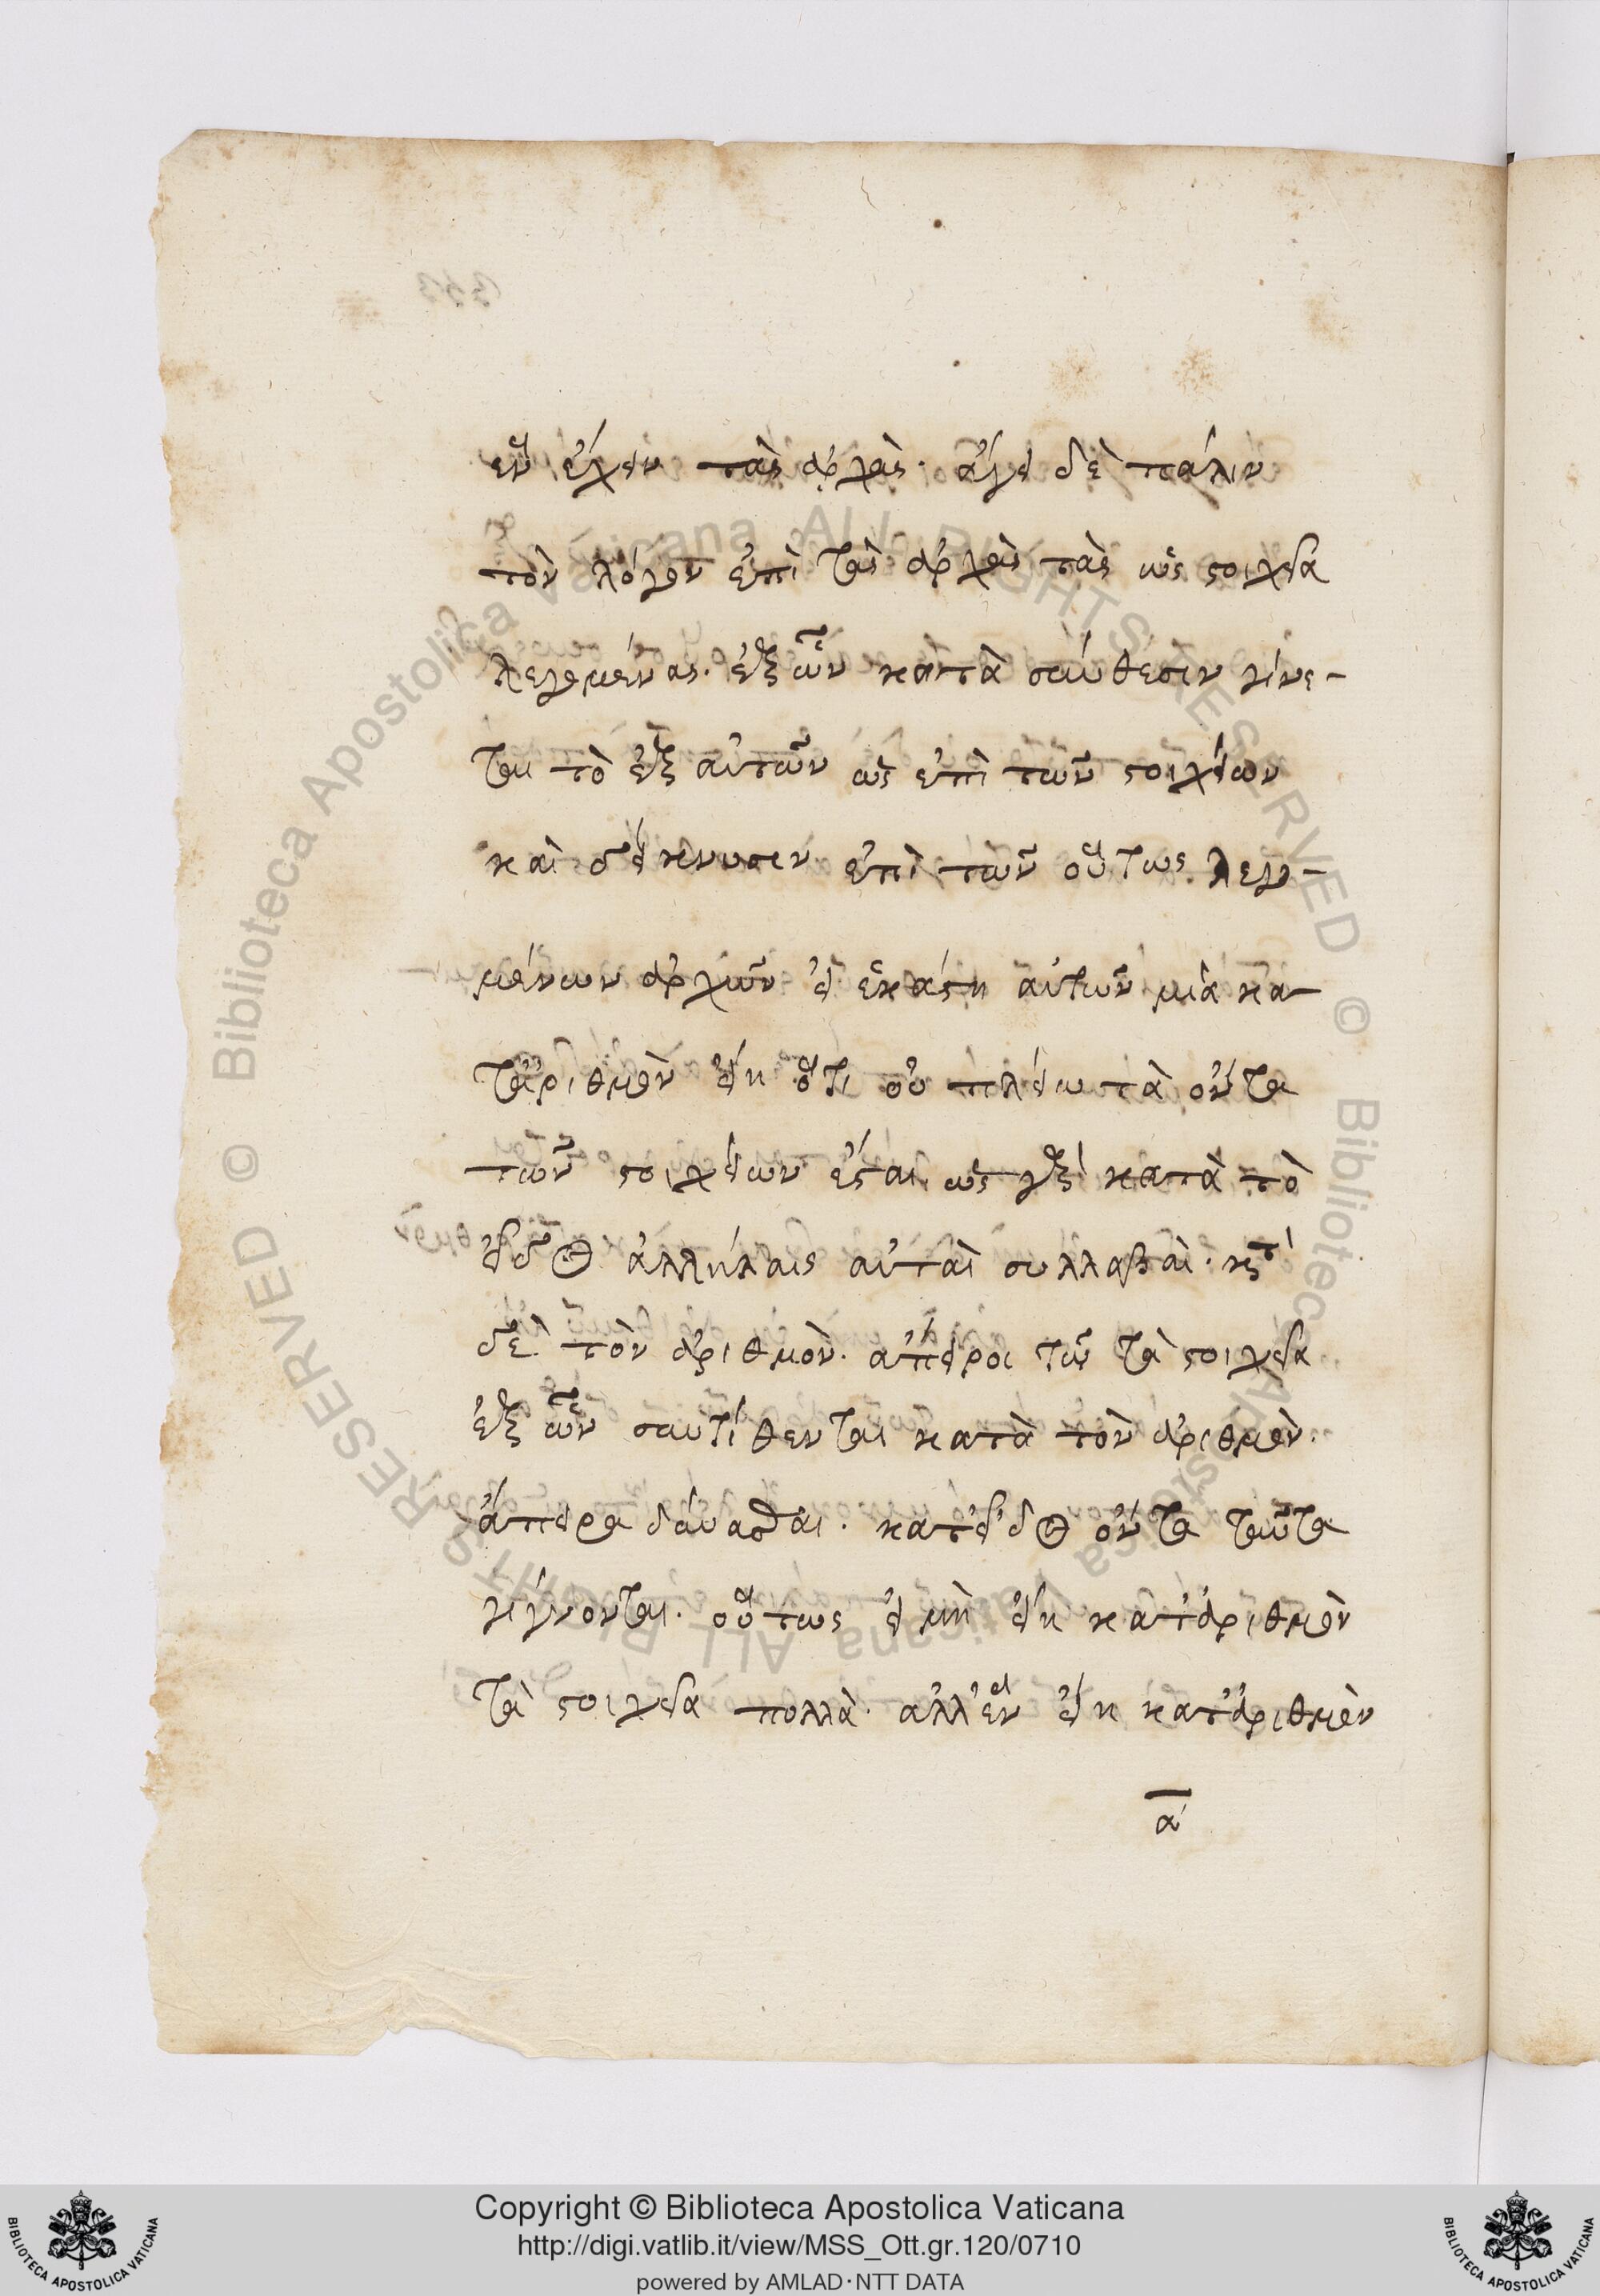 ἓν ἔχειν τὰς ἀρχὰς. ἄγει δὲ πάλιν
τὸν λόγον ἐπὶ τὰς ἀρχὰς τὰς ὡς στοιχεῖα
λεγομένας. ἐξ ὧν κατὰ σύνθεσιν γίνε-
ται τὸ ἐξ αὐτῶν ὡς ἐπὶ τῶν στοιχείων
καὶ δείκνυσιν ἐπὶ τῶν οὕτως λεγο-
μένων ἀρχῶν εἰ ἑκάστη αὐτῶν μία κα-
τ' ἀριθμὸν εἴη ὅτι οὐ πλείω τὰ ὄντα
τῶν στοιχείων ἔσται. ὡς γὰρ κατὰ τὸ
εἶδος ἀλλήλαις αὐταὶ συλλαβαὶ. κατὰ
δὲ τὸν ἀριθμὸν. ἄπειροι τῷ τὰ στοιχεῖα
ἐξ ὧν συντίθενται κατὰ τὸν ἀριθμὸν.
ἄπειρα δύνασθαι. κατ' εἶδος ὄντα ταῦτα
γίγνονται. οὕτως εἰ μὴ εἴη κατ' ἀριθμὸν
τὰ στοιχεῖα πολλὰ. ἀλλ' ἓν εἴη κατ' ἀριθμὸν
α
Copyright © Biblioteca Apostolica Vaticana
http://digi.vatlib.it/view/MSS_Ott.gr.120/0710
powered by AMLAD·NTT DATA
BIBLIOTECA APOSTOLICA VATICANA
BIBLIOTECA APOSTOLICA VATICANA
© Biblioteca Apostolica Vaticana ALL RIGHTS RESERVED © Biblioteca Apostolica Vaticana ALL RIGHTS RESERVED